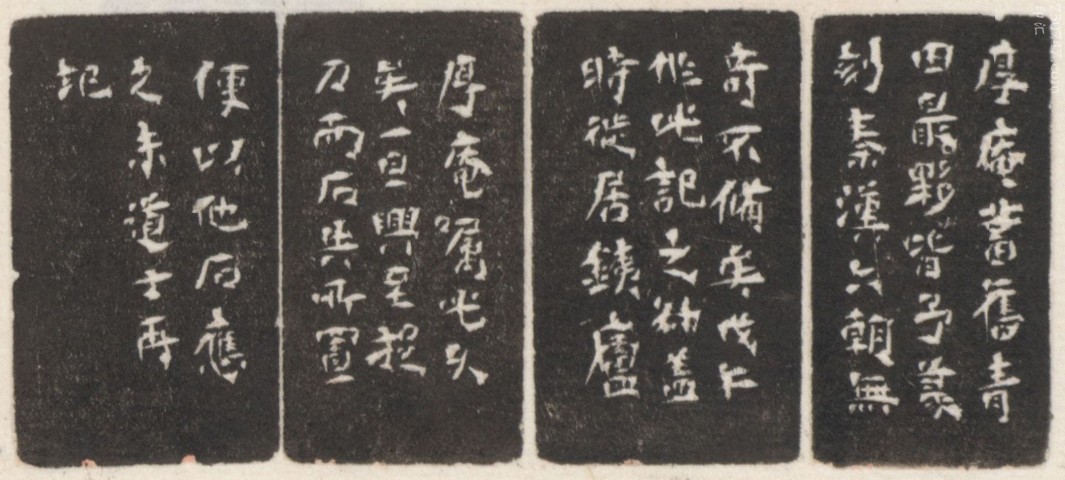 厚庵蓄舊青
田最夥皆予篆
刻秦漢六朝無
奇不備矣戊午
作此記之㓜盦
時徙居銕廬
厚庵囑此久
矣一旦興至捉
刀而石與所置
便以他石應
之未道士再
記